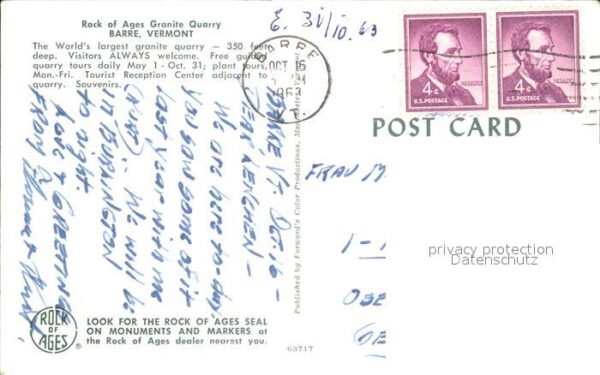 Rock of Ages Granite Quarry
BARRE, VERMONT
The World's largest granite quarry — 350 feet
deep. Visitors ALWAYS welcome. Free guided
quarry tours daily May 1 - Oct. 31; plant tours,
Mon.-Fri. Tourist Reception Center adjacent to
quarry. Souvenirs.
BARRE
OCT 16
1963
VT.
4¢
U.S. POSTAGE
4¢
U.S. POSTAGE
POST CARD
BARRE VT. OCT. 16 –
DEAR LENCHEN –
We are here to-day.
You son some of it
last year with me
. We will be
IN BURLINGTON
to night.
Love + GREETING
FROM
Published by Forward's Color Productions, Manchester, Vermont
FRAU M
privacy protection
Datenschutz
1-
OBE
GE
ROCK
OF
AGES
®
LOOK FOR THE ROCK OF AGES SEAL
ON MONUMENTS AND MARKERS at
the Rock of Ages dealer nearest you.
63717